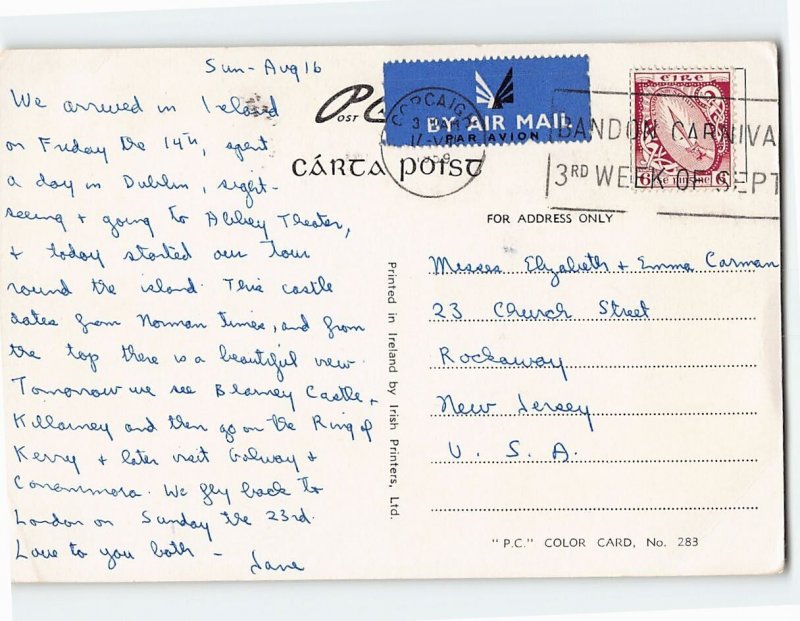 Sun - Aug 16
We arrived in Ireland
on Friday the 14th, spent
a day in Dublin, sight-
seeing + going to Abbey Theater,
+ today started our tour
round the island. This castle
dates from Norman times, and from
the top there is a beautiful view.
Tomorrow we see Blarney Castle +
Killarney and then go on the Ring of
Kerry + later visit Galway +
Conommora. We fly back to
London on Sunday the 23rd.
Love to you both -
Jane
POST
CÁRTA POIST
CORCAIGH
1959
BY AIR MAIL
PAR AVION
ÉIRE
6
6
BANDON CARNIVA
3RD WEEK OF SEPT
FOR ADDRESS ONLY
Messes Elizabeth + Emma Carman
23 Church Street
Rockaway
New Jersey
U. S. A.
Printed in Ireland by Irish Printers, Ltd.
"P.C." COLOR CARD, No. 283